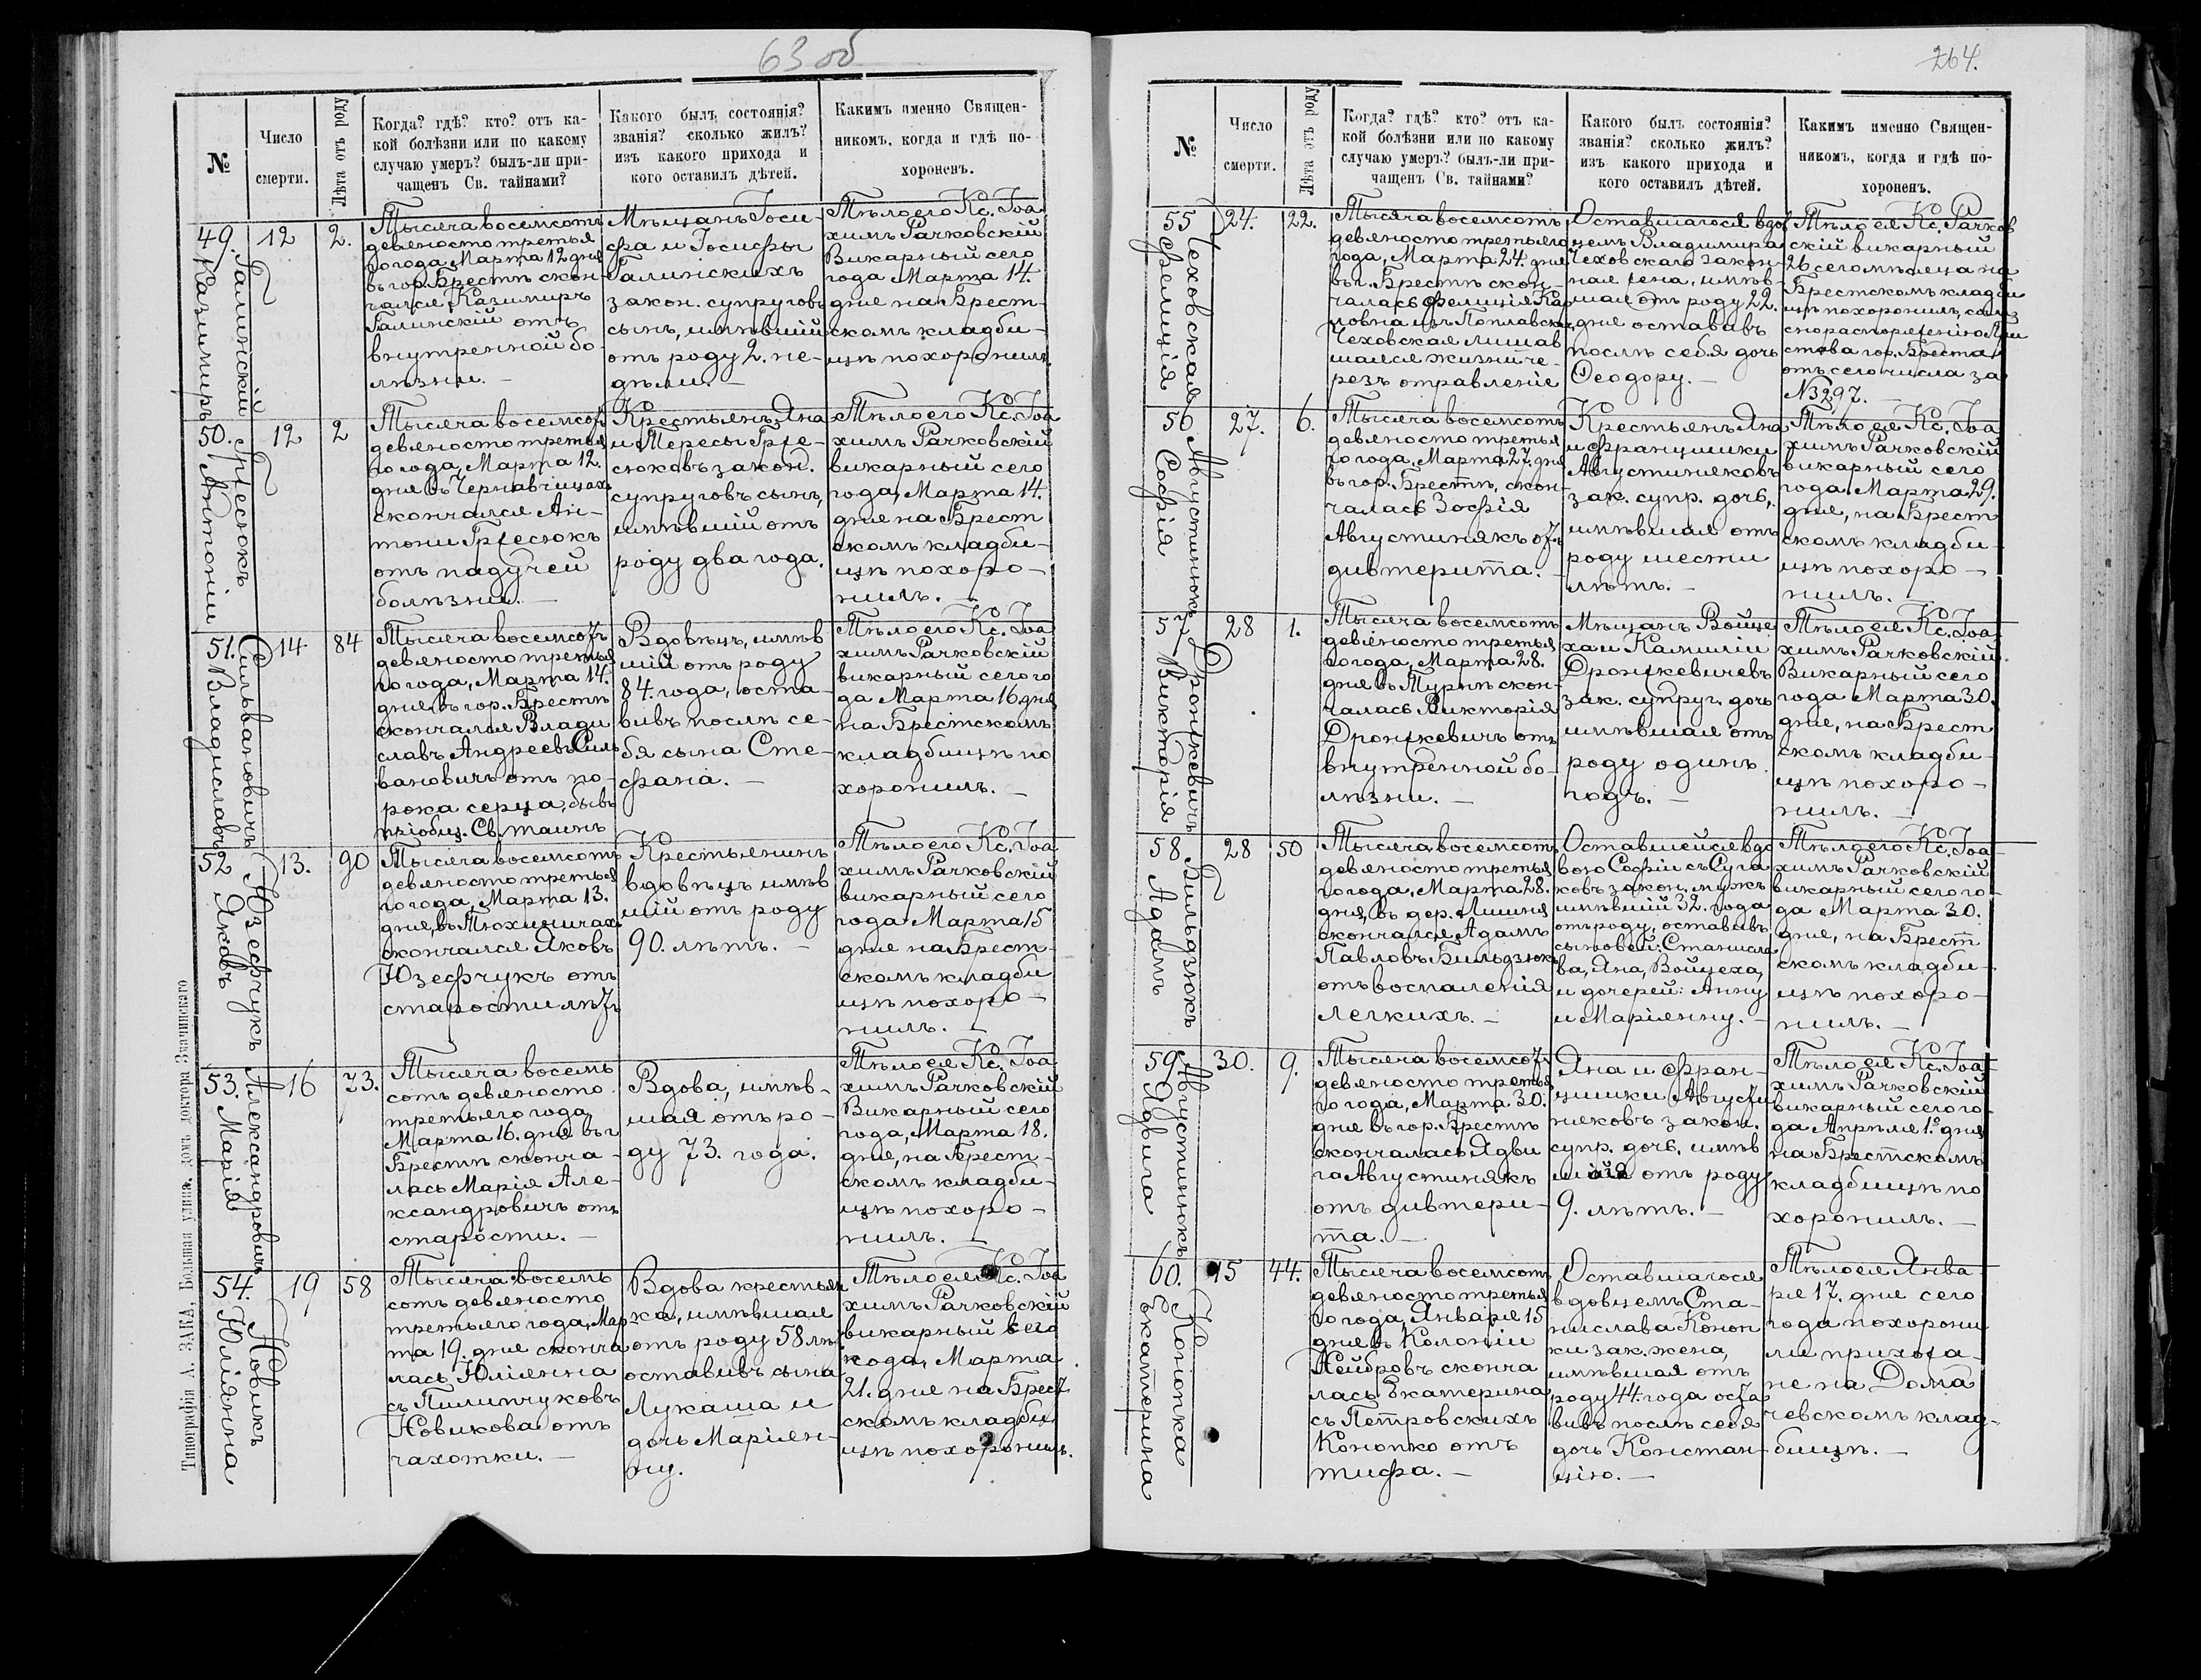 63 об
№
Число
смерти.
Лѣта отъ роду
Когда? гдѣ? кто? отъ ка-
кой болѣзни или по какому
случаю умеръ? былъ-ли при-
чащенъ Св. тайнами?
Какого былъ состоянія?
званія? сколько жилъ?
изъ какого прихода и
кого оставилъ дѣтей.
Какимъ именно Священ-
никомъ, когда и гдѣ по-
хороненъ.
49.
Галинскій
Казимиръ
12
2.
Тысяча восемсотъ
девяносто третья
го года Марта 12 дня
въ гор. Брестѣ скон-
чался Казимиръ
Галинскій отъ
внутренной бо-
лѣзни. —
Мѣщанъ Іоси-
фа и Іосифы
Галинскихъ
закон. супруговъ
сынъ, имѣвшій
отъ роду 2. не-
дѣли. —
Тѣло его Кс. Іоа
химъ Рачковскій
Викарный сего
года Марта 14.
дня на Брест-
скомъ кладби-
щѣ похоронилъ
50.
Гржесюкъ
Антоній
12
2
Тысяча восемсотъ
девяносто третья
го года, Марта 12.
дня въ Чернавчицахъ
скончался Ан-
тони Гржесюкъ
отъ падучей
болѣзни. —
Крестьянъ Яна
и Тересы Грже-
сюковъ закон.
супруговъ сынъ,
имѣвшій отъ
роду два года.
Тѣло его Кс. Іоа
химъ Рачковскій
викарный сего
года, Марта 14.
дня на Брест
скомъ кладби-
щѣ похоро-
нилъ. —
51.
Сильвановичъ
Владиславъ
14
84
Тысяча восемсотъ
девяносто третья
го года, Марта 14.
дня, въ гор. Брестѣ
скончался Влади
славъ Андреевъ Силь
вановичъ отъ по-
рока серца, бывъ
пріобщ. Св. таинъ
Вдовѣцъ, имѣв
шій отъ роду
84. года, оста-
вивъ послѣ се-
бя сына Сте-
фана. —
Тѣло его Кс. Іоа
химъ Рачковскій
викарный сего го
да Марта 16 дня
на Брестскомъ
кладбищѣ по
хоронилъ. —
52
Юзефчукъ
Яковъ
13.
90
Тысяча восемсотъ
девяносто третья
го года, Марта 13.
дня, въ Тюхиничахъ
скончался Яковъ
Юзефчукъ отъ
старости лѣтъ
Крестьянинъ
вдовѣцъ имѣв
шій отъ роду
90. лѣтъ. —
Тѣло его Кс. Іоа
химъ Рачковскій
викарный сего
года Марта 15
дня на Брест-
скомъ кладби
щѣ похоро-
нилъ. —
53.
Александровичъ
Марія
16
73.
Тысяча восемь
сотъ девяносто
третьяго года,
Марта 16. дня въ г.
Брестѣ сконча-
лась Марія Але-
ксандровичъ отъ
старости. —
Вдова, имѣв-
шая отъ ро-
ду 73. года.
Тѣло ея Кс. Іоа
химъ Рачковскій
Викарный сего
года, Марта 18.
дня, на Брест-
скомъ кладби-
щѣ похоро-
нилъ. —
54.
Новикъ
Юліянна
19
58
Тысяча восемь
сотъ девяносто
третьяго года, Мар-
та 19. дня сконча
лась Юліянна
съ Пилипчуковъ
Новикова отъ
чахотки. —
Вдова крестьян
ка, имѣвшая
отъ роду 58 лѣт.
оставивъ сына
Лукаша и
дочь Маріян-
ну.
Тѣло ея Кс. Іоа
химъ Рачковскій
викарный сего
года, Марта
21. дня на Брест
скомъ кладби
щѣ похоронилъ.
Типографія А. ЗАКА, Большая улица, домъ доктора Значинскаго
264.
№
Число
смерти.
Лѣта отъ роду
Когда? гдѣ? кто? отъ ка-
кой болѣзни или по какому
случаю умеръ? былъ-ли при-
чащенъ Св. тайнами?
Какого былъ состоянія?
званія? сколько жилъ?
изъ какого прихода и
кого оставилъ дѣтей.
Какимъ именно Священ-
никомъ, когда и гдѣ по-
хороненъ.
55
Чеховская
Фелиція
24.
22.
Тысяча восемсотъ
девяносто третьяго
года, Марта 24. дня
въ г. Брестѣ скон-
чалась Фелиція Кар
ловна изъ Поплавских
Чеховская лишав
шаяся жизни че-
резъ отравленіе
Оставшагося вдов
цемъ Владимира
Чеховскаго закон-
ная жена, имѣв-
шая отъ роду 22.
дня оставивъ
послѣ себя дочь
Ѳеодору. —
Тѣло ея Кс. Рачков
скій викарный
26 сего мѣсяца на
Брестскомъ кладби
щѣ похоронилъ, согла
сно распоряженію При
става гор. Бреста
отъ сего числа за
№ 3297. —
56
Августинюкъ
Софія
27.
6.
Тысяча восемсотъ
девяносто третья
го года, Марта 27. дня
въ гор. Брестѣ, скон-
чалась Зофія
Августинякъ отъ
дивтерита. —
Крестьянъ Яна
и Францишки
Августиняковъ
зак. супр. дочь,
имѣвшая отъ
роду шести
лѣтъ. —
Тѣло ея Кс. Іоа
химъ Рачковскій
викарный сего
года Марта 29.
дня, на Брест
скомъ кладби-
щѣ похоро-
нилъ. —
57
Дронжкевичъ
Викторія
28
1.
Тысяча восемсотъ
девяносто третья
го года, Марта 28.
дня въ Турнѣ скон-
чалась Викторія
Дронжкевичъ отъ
внутренной бо-
лѣзни. —
Мѣщанъ Войце
ха и Камиліи
Дронжкевичевъ
зак. супруг. дочь
имѣвшая отъ
роду одинъ
годъ. —
Тѣло ея Кс. Іоа
химъ Рачковскій
Викарный сего
года Марта 30.
дня, на Брест
скомъ кладби-
щѣ похоро-
нилъ. —
58
Бильдзюкъ
Адамъ
28
50
Тысяча восемсотъ
девяносто третья
го года, Марта 28.
дня, въ дер. Лишня
скончался Адамъ
Павловъ Бильдзюкъ
отъ воспаленія
легкихъ. —
Оставшейся вдо
вою Софіи съ Суга
ковъ закон. мужъ
имѣвшій 32. года
отъ роду, оставивъ
сыновей: Станисла
ва, Яна, Войцеха,
и дочерей: Анну
и Маріянну. —
Тѣло его Кс. Іоа-
химъ Рачковскій
викарный сего го-
да Марта 30.
дня, на Брест
скомъ кладби-
щѣ похоро-
нилъ. —
59
Августинюкъ
Ядвига
30.
9.
Тысяча восемсотъ
девяносто третья
го года, Марта 30.
дня въ гор. Брестѣ
скончалась Ядви
га Августинякъ
отъ дивтери-
та. —
Яна и Фран-
цишки Августи
няковъ закон.
супр. дочь, имѣв
шая отъ роду
9. лѣтъ. —
Тѣло ея Кс. Іоа-
химъ Рачковскій
викарный сего го-
да Апрѣля 1. дня
на Брестскомъ
кладбищѣ по
хоронилъ. —
60.
Конопка
Екатерина
15
44.
Тысяча восемсотъ
девяносто третья
го года, Января 15
дня въ Колоніи
Нейбровъ сконча
лась Екатерина
съ Петровскихъ
Конопко отъ
тифа. —
Оставшагося
вдовцемъ Ста-
нислава Коноп
ки зак. жена,
имѣвшая отъ
роду 44. года оста
вивъ послѣ себя
дочь Констан-
цію. —
Тѣло ея Янва
ря 17. дня сего
года похорони
ли прихожа-
не на Дома
чевскомъ клад-
бищѣ. —